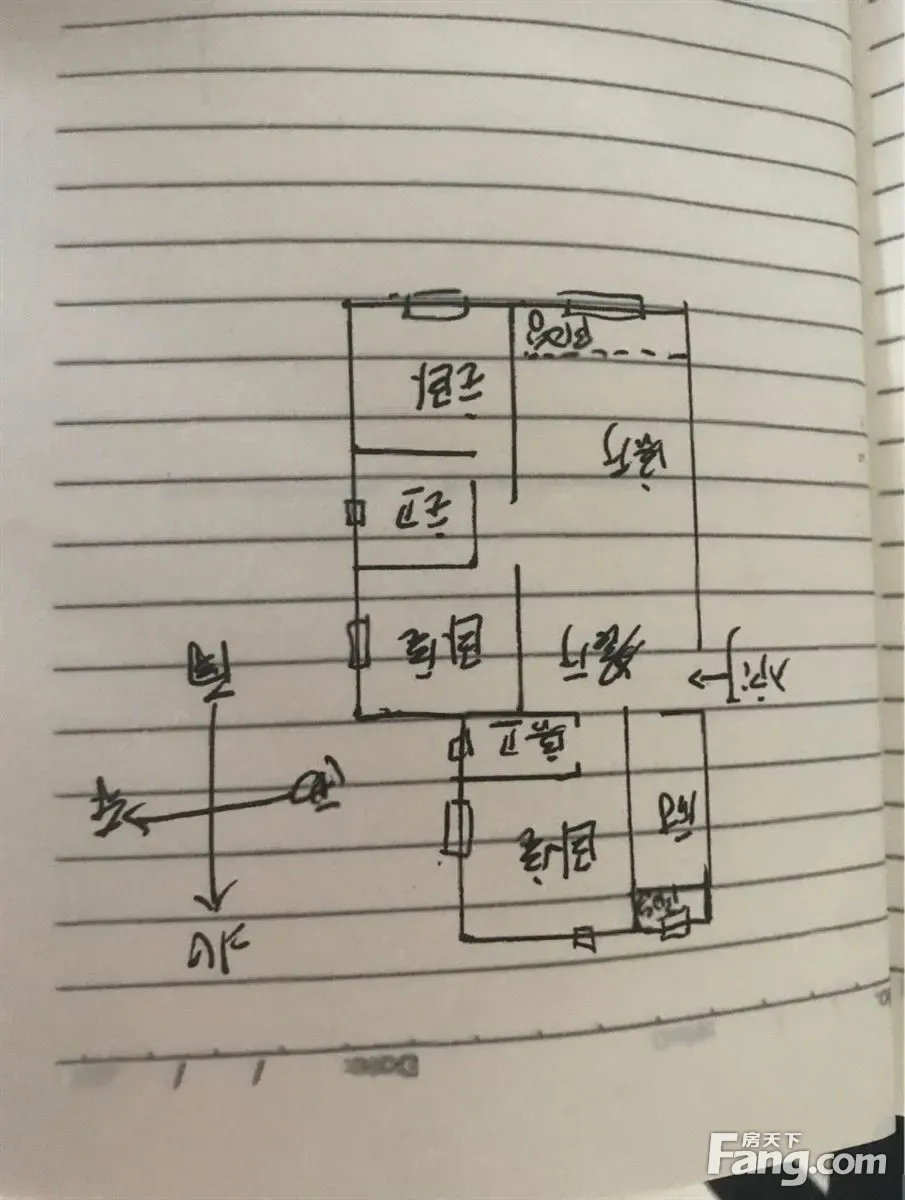 Date / /
北
阳台
厨
卧室
西
东
客卫
入户
餐厅
卧室
南
主卫
客厅
主卧
阳台
房天下
Fang.com